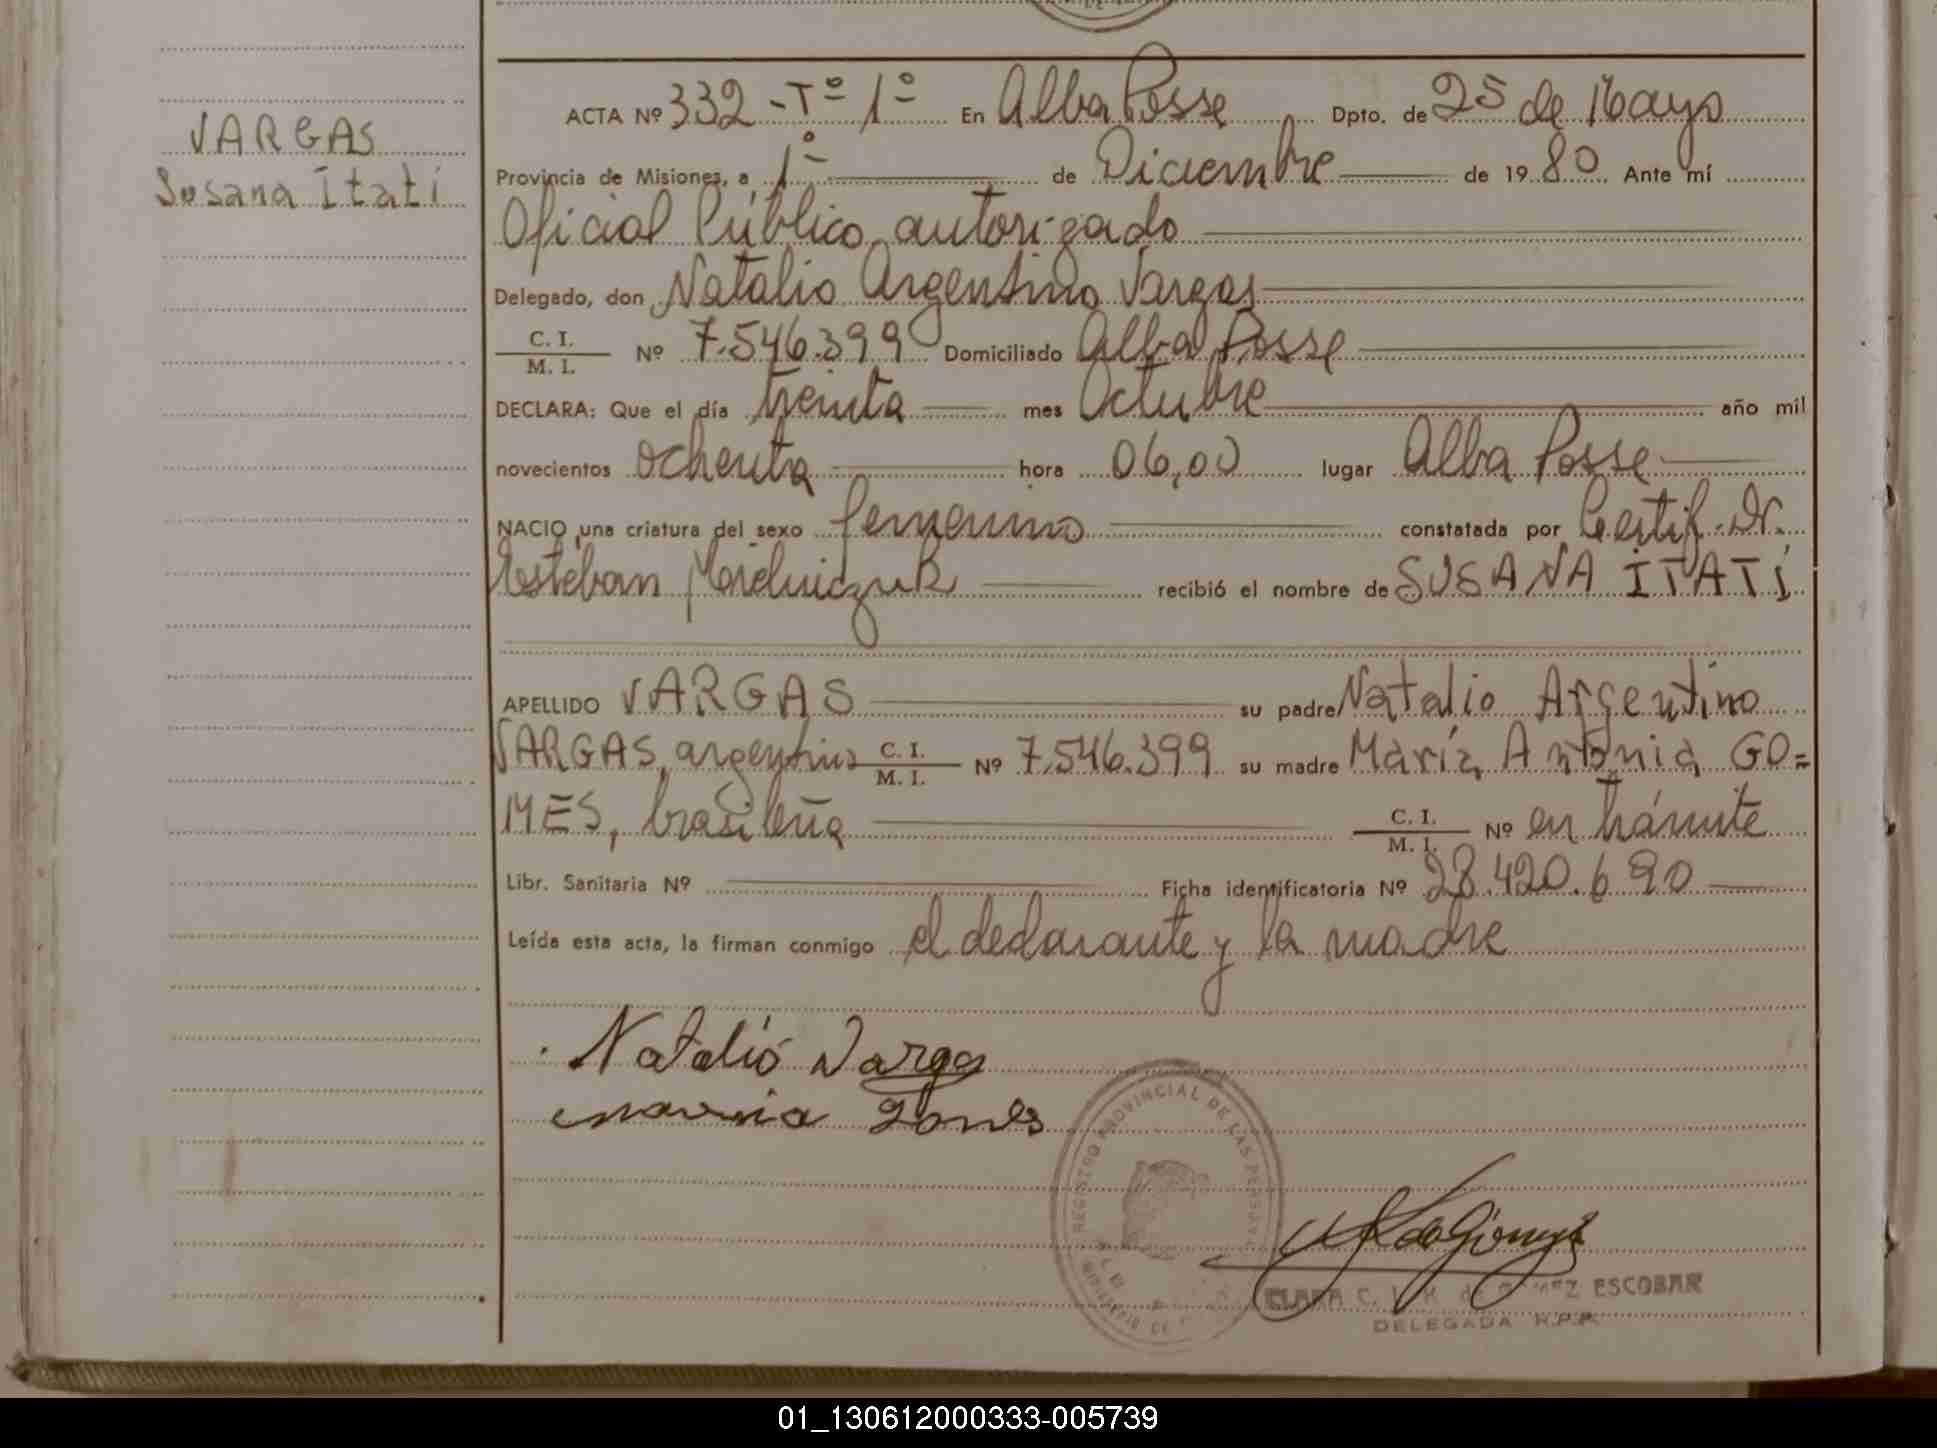 VARGAS
Susana Itatí
ACTA Nº 332 - Tº 1º En Alba Posse Dpto. de 25 de Mayo
Provincia de Misiones, a 1º de Diciembre de 1980 Ante mí
Oficial Público autorizado
Delegado, don Natalio Argentino Vargas
C. I.
M. I.
Nº 7.546.399 Domiciliado Alba Posse
DECLARA: Que el día treinta mes Octubre año mil
novecientos ochenta hora 06,00 lugar Alba Posse
NACIO una criatura del sexo femenino constatada por Certif. Dr.
Esteban recibió el nombre de SUSANA ITATÍ
APELLIDO VARGAS su padre Natalio Argentino
VARGAS, argentino C. I. / M. I. Nº 7.546.399 su madre María Antonia GO=
MES, brasileña C. I. / M. I. Nº en trámite
Libr. Sanitaria Nº Ficha identificatoria Nº 28.420.690
Leída esta acta, la firman conmigo el declarante y la madre
Natalio Varga
maria gomes
REGISTRO PROVINCIAL DE LAS PERSONAS
MINISTERIO DE
CLARA C. de GOMEZ ESCOBAR
DELEGADA R.P.P.
01_130612000333-005739